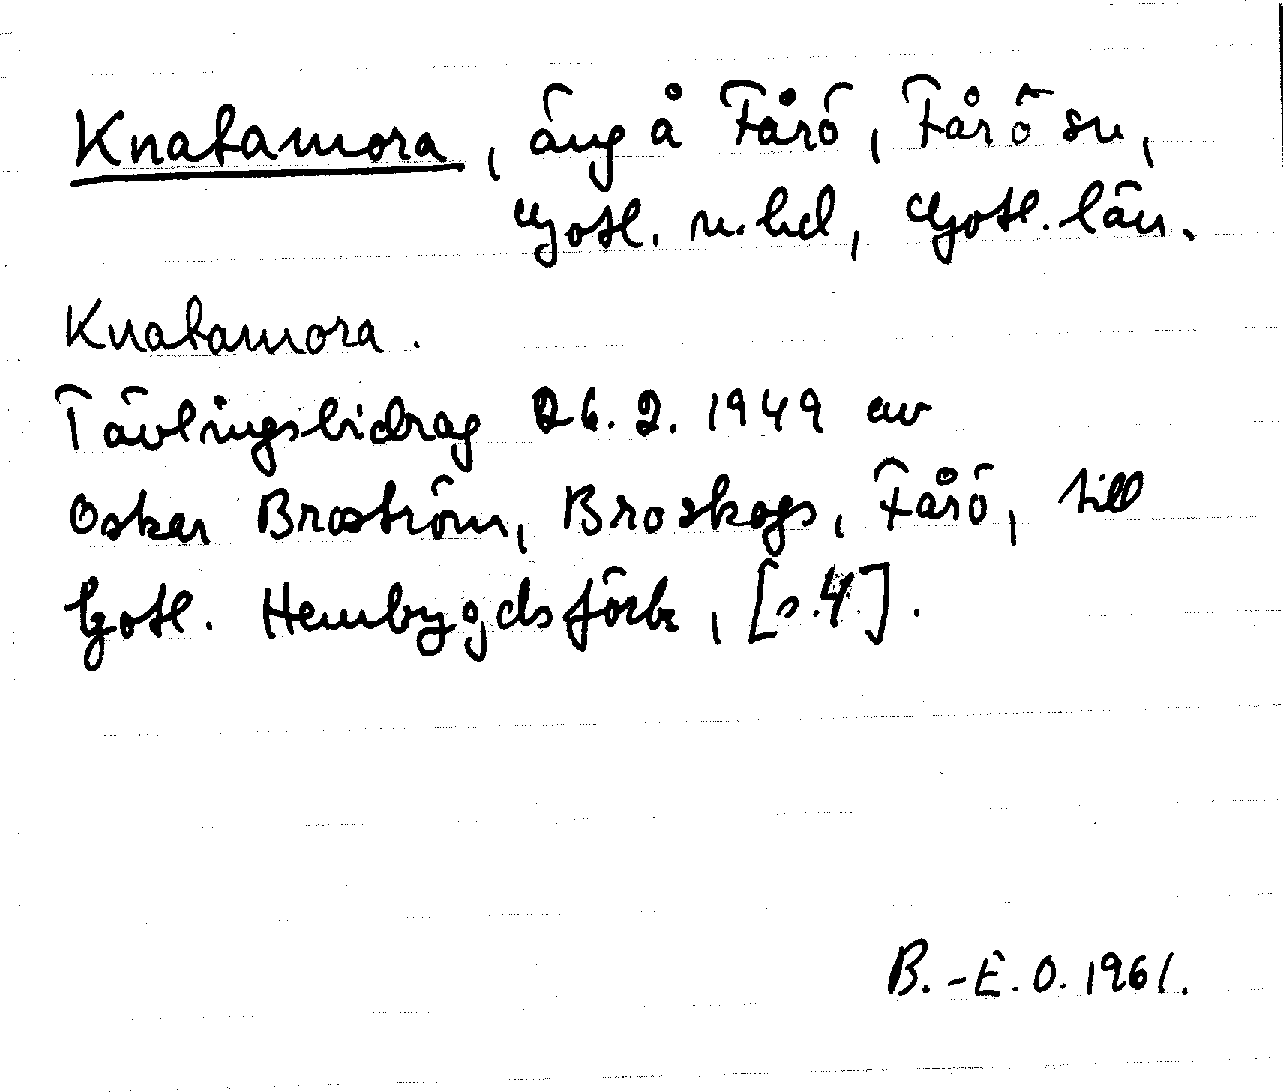 Knabamora, äng å Fårö, Fårö sn,
Gotl. n. hd, Gotl. län.
Knabamora.
Tävlingsbidrag 26.2.1949 av
Oskar Broström, Broskogs, Fårö, till
Gotl. Hembygdsförb., [s.4].
B.-E.O. 1961.